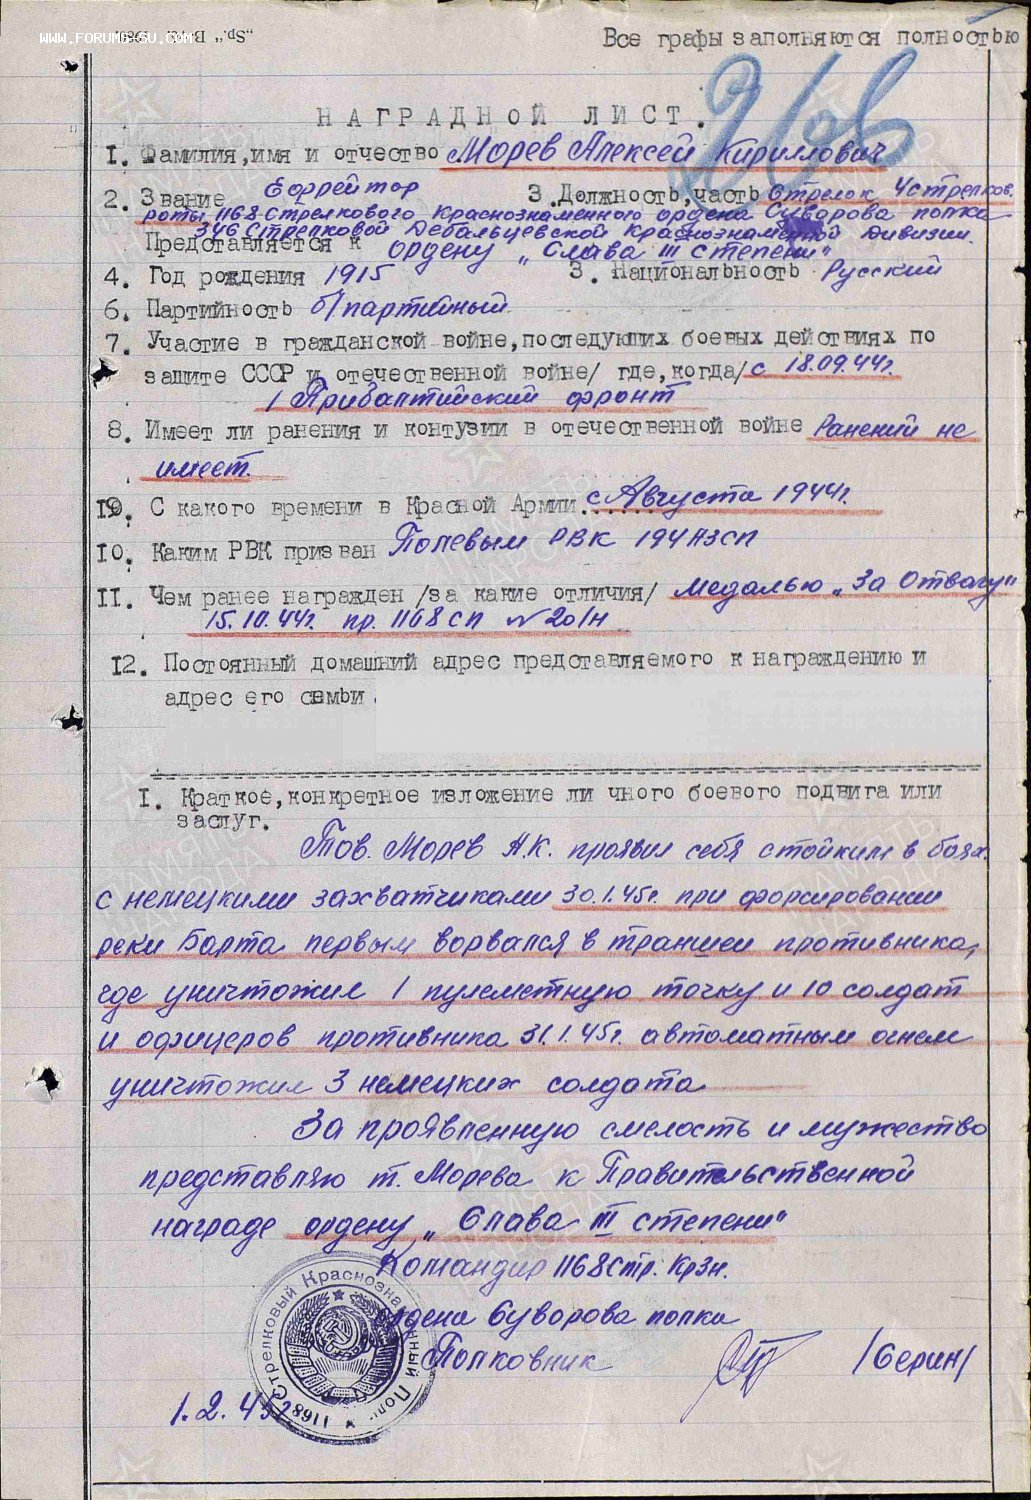 WWW.FORUMBGSU.COM
Все графы заполняются полностью
НАГРАДНОЙ ЛИСТ.
1. Фамилия, имя и отчество Морев Алексей Кириллович
2. Звание Ефрейтор 3. Должность, часть Стрелок 4 стрелков.
роты 1168 Стрелкового Краснознаменного ордена Суворова полка
346 Стрелковой Дебальцевской Краснознаменной дивизии.
Представляется к ордену „Слава III степени"
4. Год рождения 1915 3. Национальность Русский
6. Партийность б/партийный.
7. Участие в гражданской войне, последующих боевых действиях по
защите СССР и отечественной войне/ где, когда/ с 18.09.44г.
1 Прибалтийский фронт
8. Имеет ли ранения и контузии в отечественной войне Ранений не
имеет.
19. С какого времени в Красной Армии. с Августа 1944г.
10. Каким РВК призван Полевым РВК 194 АЗСП
11. Чем ранее награжден /за какие отличия/ Медалью „За Отвагу"
15.10.44г. пр. 1168 СП №201н
12. Постоянный домашний адрес представляемого к награждению и
адрес его семьи.
1. Краткое, конкретное изложение ли чного боевого подвига или
заслуг.
Тов. Морев А.К. проявил себя стойким в боях
с немецкими захватчиками 30.1.45г. при форсировании
реки Барта первым ворвался в траншеи противника,
где уничтожил 1 пулеметную точку и 10 солдат
и офицеров противника 31.1.45г. автоматным огнем
уничтожил 3 немецких солдата
За проявленную смелость и мужество
представляю т. Морева к Правительственной
награде ордену „Слава III степени"
Командир 1168 Стр. Крзн.
ордена Суворова полка
Полковник /Серин/
1.2.45г.
Стрелковый Краснознаменный Полк 1168